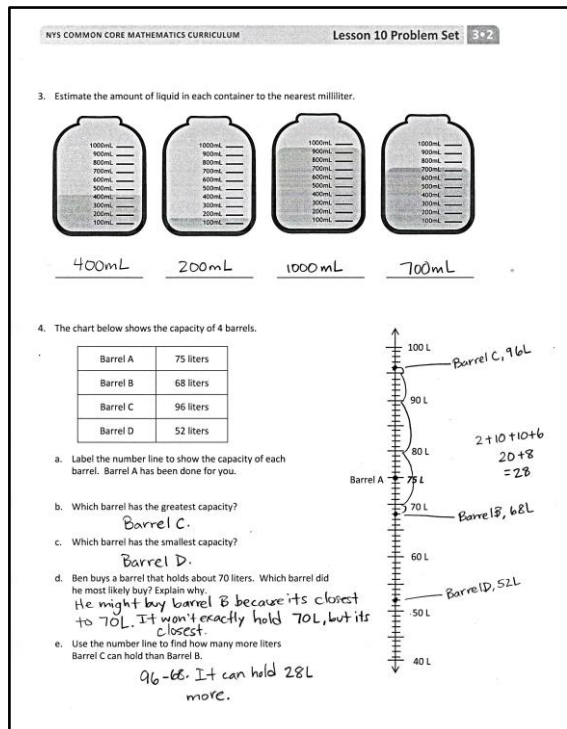 NYS COMMON CORE MATHEMATICS CURRICULUM
Lesson 10 Problem Set 3•2
3. Estimate the amount of liquid in each container to the nearest milliliter.
1000mL 1000mL 1000mL 1000mL
900mL 900mL 900mL 900mL
800mL 800mL 800mL 800mL
700mL 700mL 700mL 700mL
600mL 600mL 600mL 600mL
500mL 500mL 500mL 500mL
400mL 400mL 400mL 400mL
300mL 300mL 300mL 300mL
200mL 200mL 200mL 200mL
100mL 100mL 100mL 100mL
400mL 200mL 1000mL 700mL
4. The chart below shows the capacity of 4 barrels.
Barrel A 75 liters
Barrel B 68 liters
Barrel C 96 liters
Barrel D 52 liters
a. Label the number line to show the capacity of each
barrel. Barrel A has been done for you.
b. Which barrel has the greatest capacity?
Barrel C.
c. Which barrel has the smallest capacity?
Barrel D.
d. Ben buys a barrel that holds about 70 liters. Which barrel did
he most likely buy? Explain why.
He might buy barrel B because its closest
to 70L. It won't exactly hold 70L, but its
closest.
e. Use the number line to find how many more liters
Barrel C can hold than Barrel B.
96-68. It can hold 28L
more.
100 L
Barrel C, 96L
90 L
80 L
Barrel A 75 L
70 L
Barrel B, 68L
60 L
Barrel D, 52L
50 L
40 L
2+10+10+6
20+8
=28